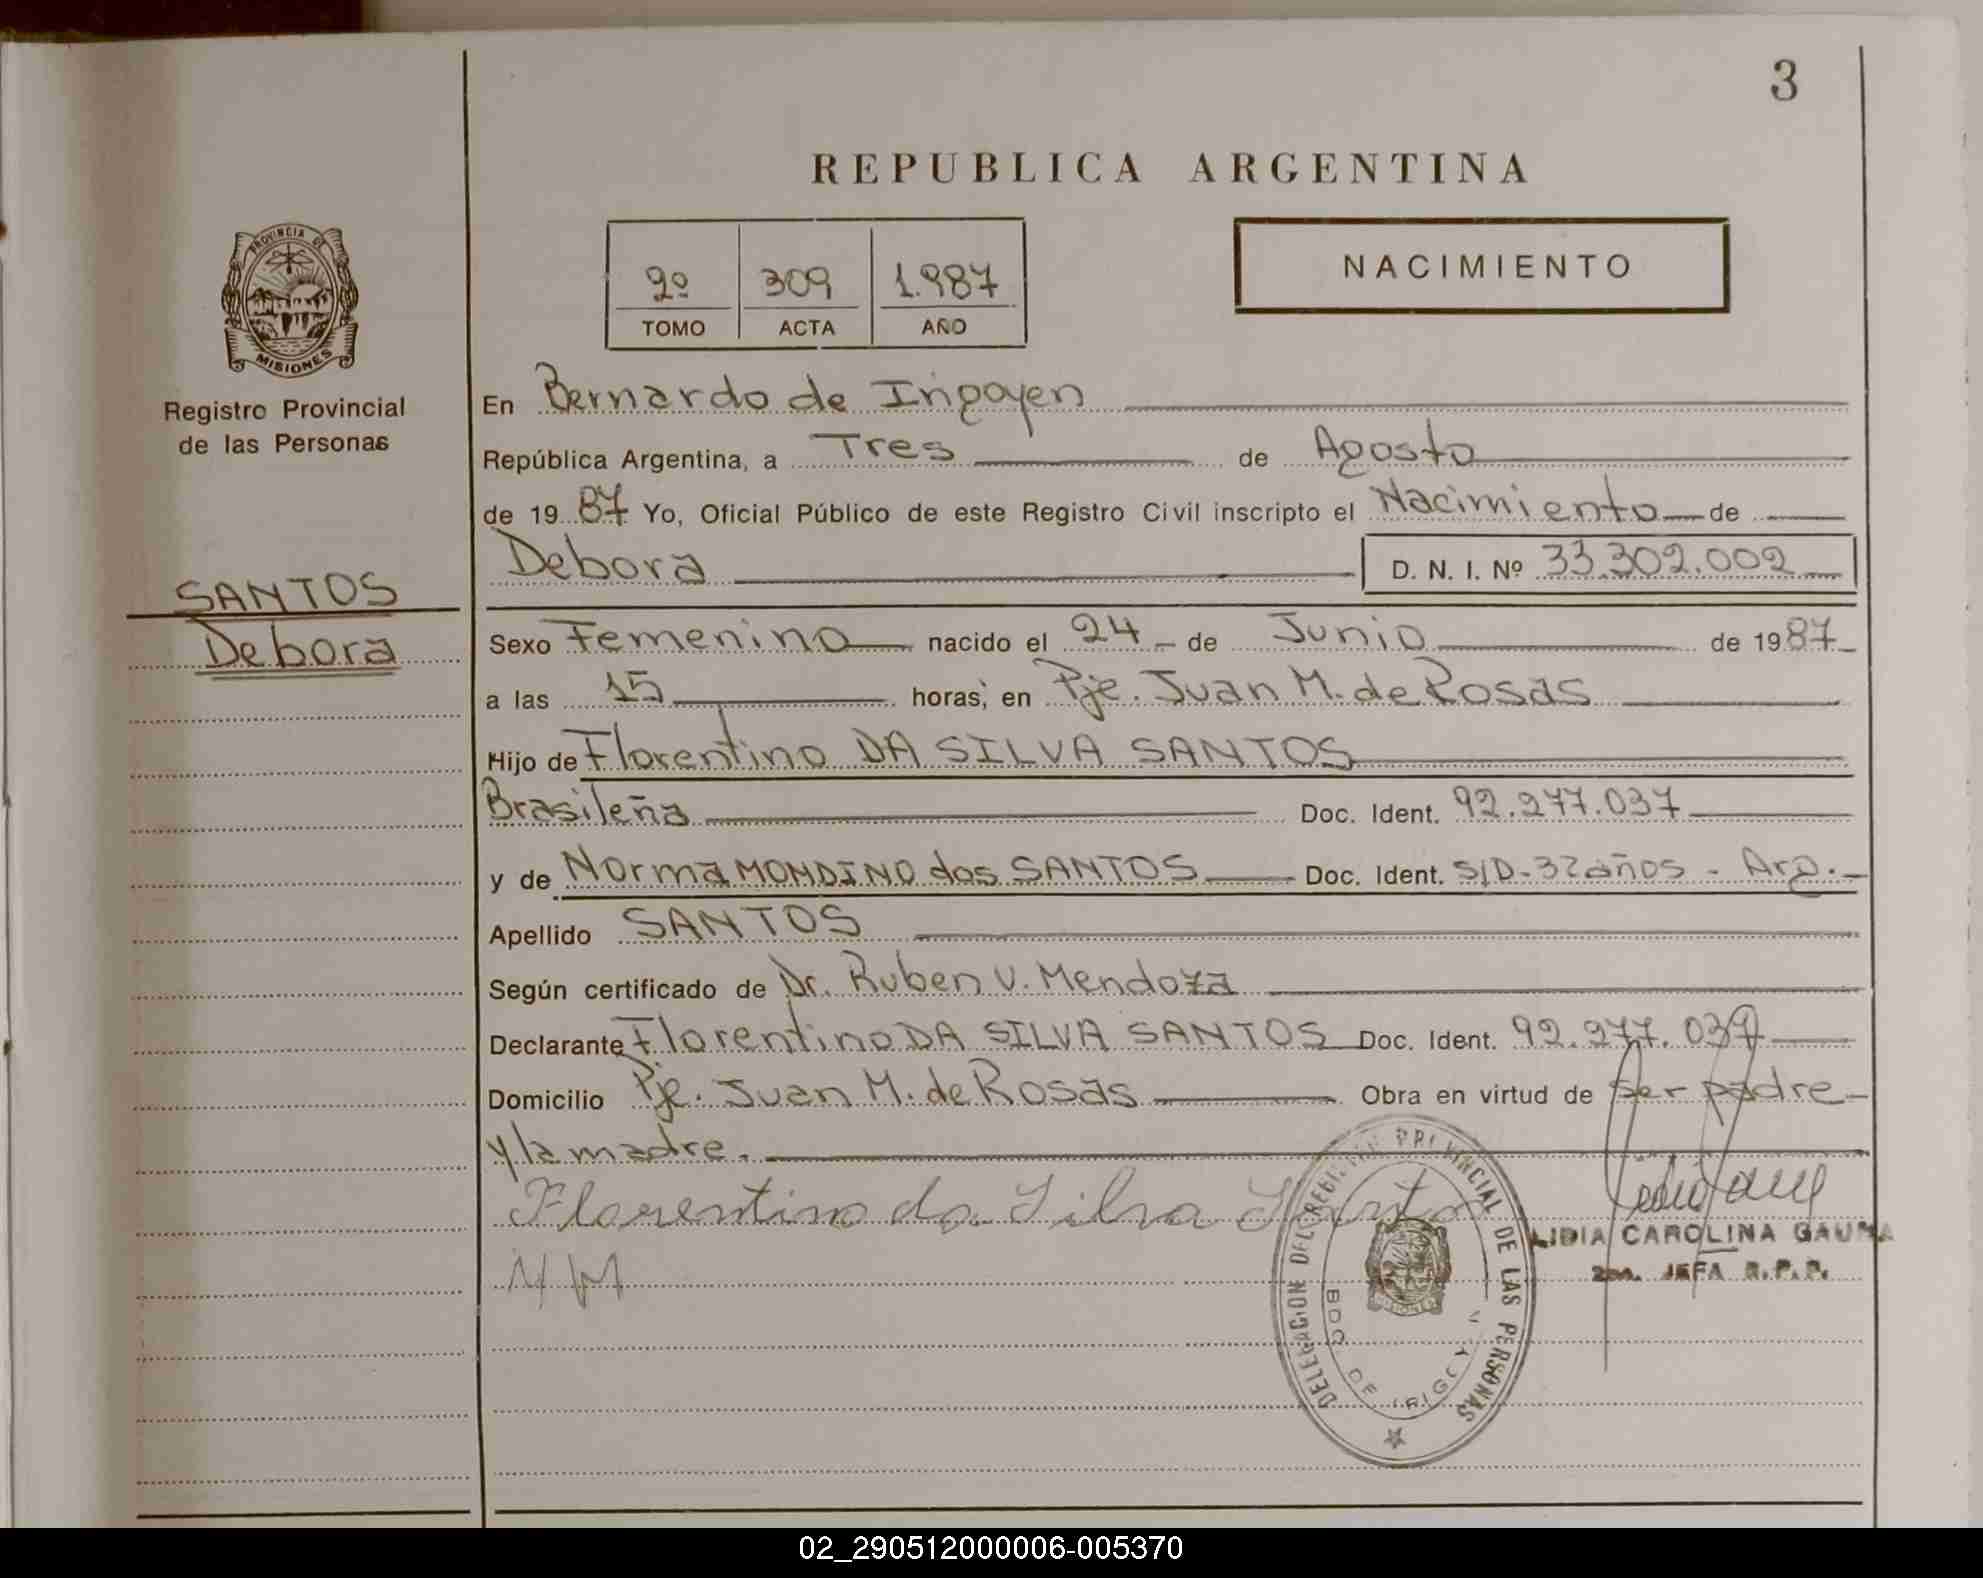 3
REPUBLICA ARGENTINA
PROVINCIA DE
MISIONES
Registro Provincial
de las Personas
SANTOS
Debora
2º 309 1.987
TOMO ACTA AÑO
NACIMIENTO
En Bernardo de Irigoyen
República Argentina, a Tres de Agosto
de 19 87 Yo, Oficial Público de este Registro Civil inscripto el Nacimiento de
Debora D. N. I. Nº 33.302.002
Sexo Femenino nacido el 24 de Junio de 1987
a las 15 horas, en Pje. Juan M. de Rosas
Hijo de Florentino DA SILVA SANTOS
Brasileña Doc. Ident. 92.277.037
y de Norma MONDINO dos SANTOS Doc. Ident. S/D-32 años - Arg.
Apellido SANTOS
Según certificado de Dr. Ruben V. Mendoza
Declarante Florentino DA SILVA SANTOS Doc. Ident. 92.277.037
Domicilio Pje. Juan M. de Rosas Obra en virtud de Ser padre
y la madre.
Florentino da Silva Santos
N M
LIDIA CAROLINA GAUNA
2da. JEFA R.P.P.
DELEGACION DEL REGISTRO PROVINCIAL DE LAS PERSONAS
BDO DE IRIGOYEN
02_290512000006-005370